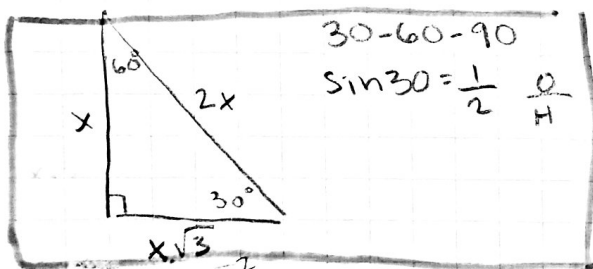 30-60-90
sin30 = 1/2 O/H
60°
x
2x
30°
x√3